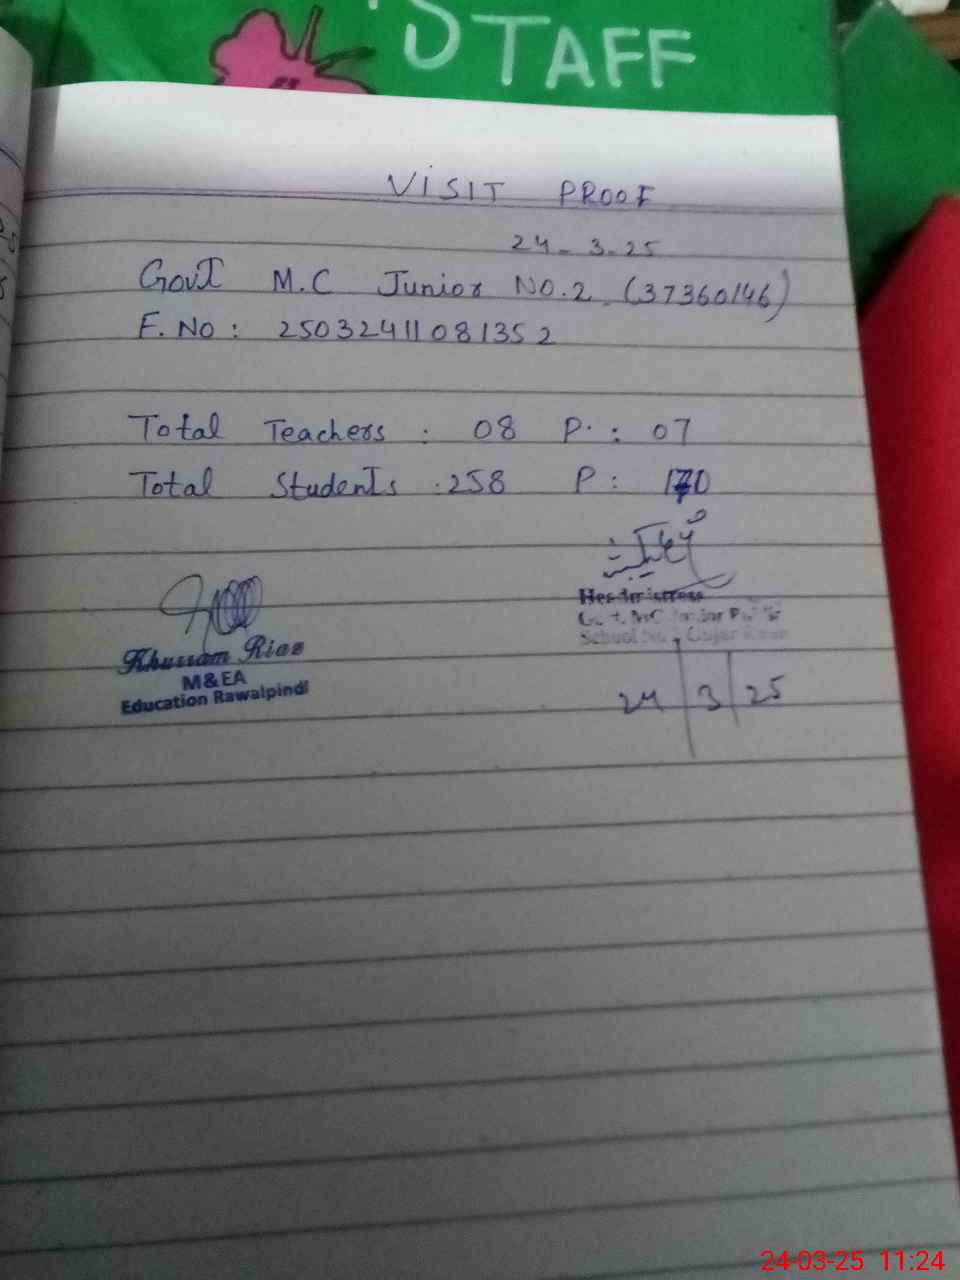 'STAFF
VISIT PROOF
24-3-25
Govt M.C Junior No.2 (37360146)
F. No: 25032411081352
Total Teachers : 08 P. : 07
Total Students : 258 P : 170
Khurram Riaz
M&EA
Education Rawalpindi
Headmistress
Govt. M.C Junior
School No Gujar Khan
24/3/25
24-03-25 11:24